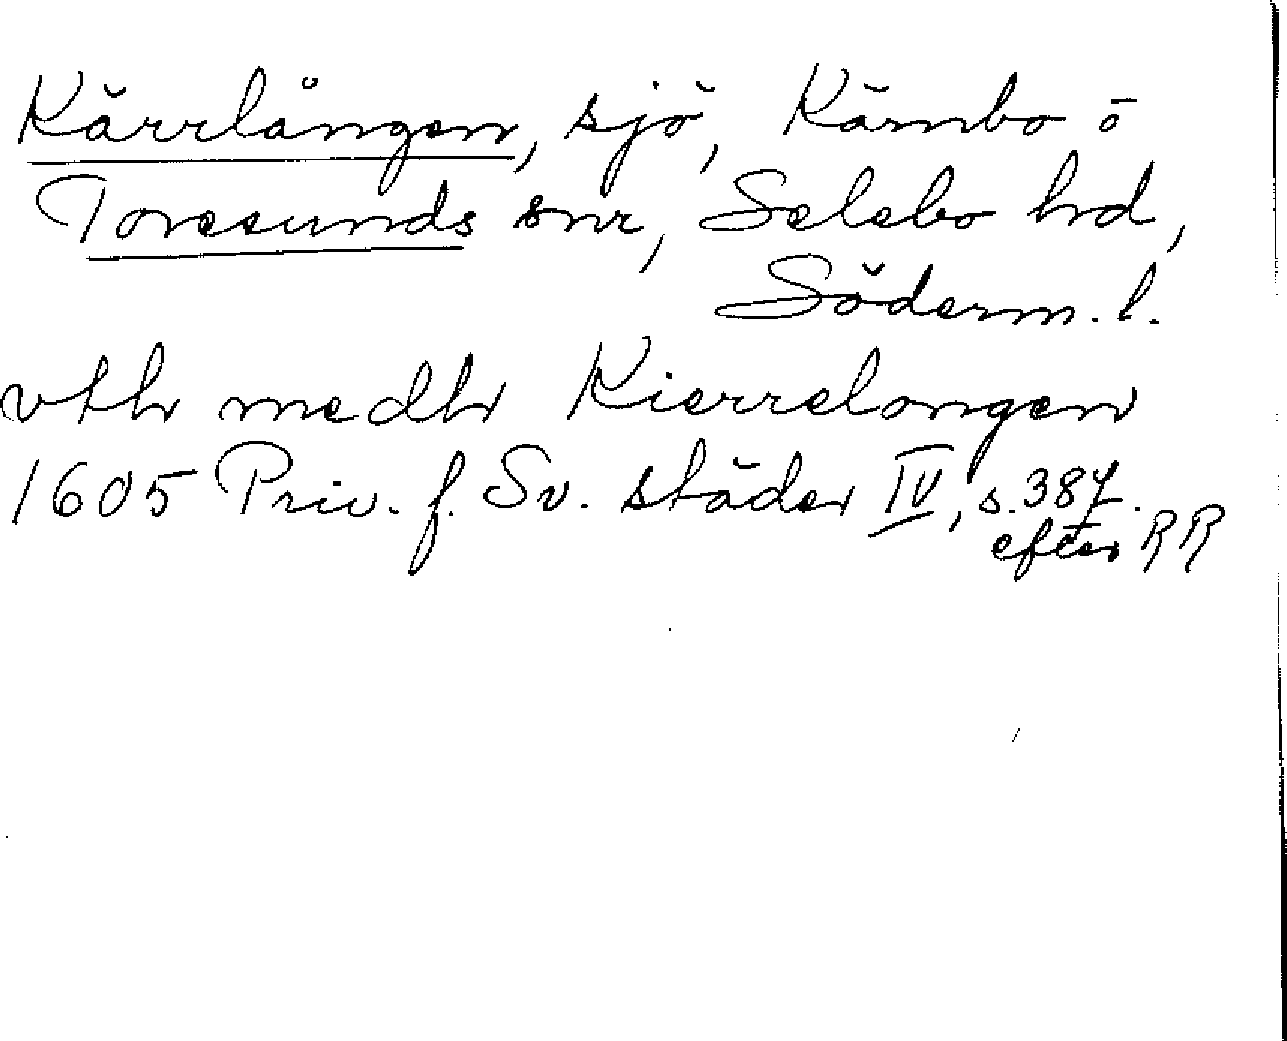 Kärrlången, sjö, Kärnbo o
Toresunds snr, Selebo hd,
Söderm. l.
vthr medhr Kierrelongen
1605 Priv. f. Sv. städer IV, s. 387.
efter RR